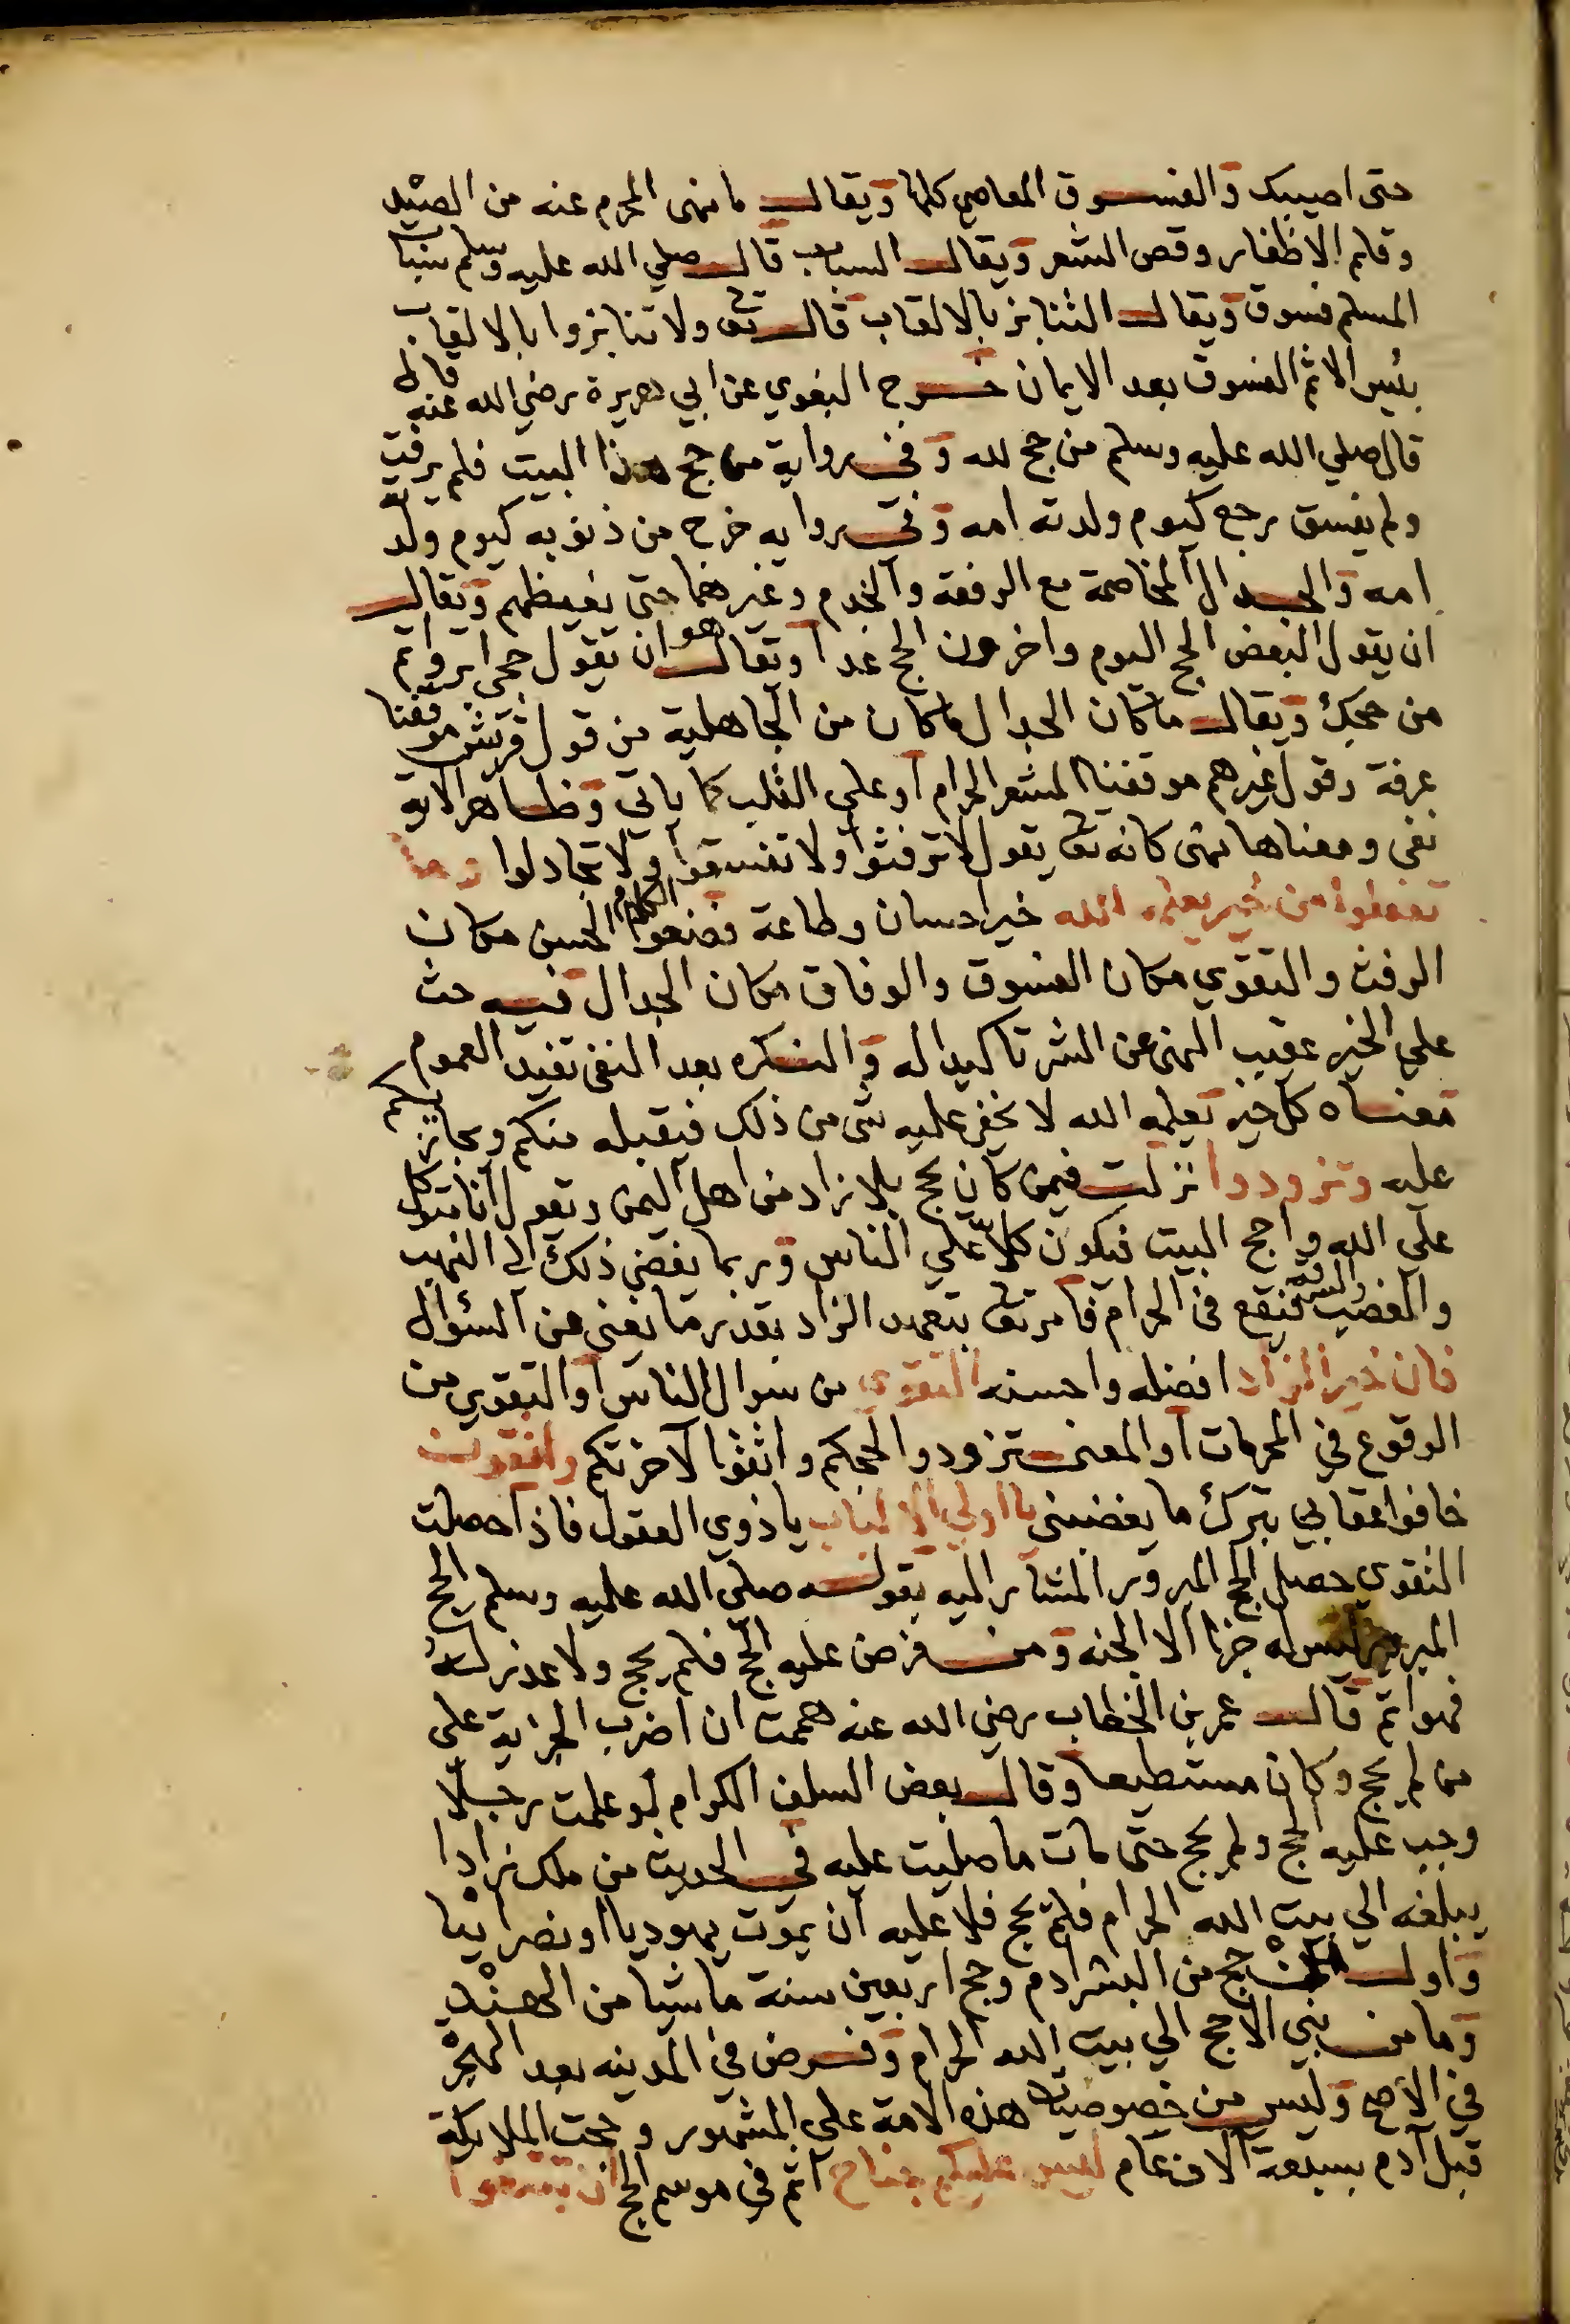 حتى اصيبك والفسوق المعاصي كلها ويقال ما نهى المحرم عنه من الصيد
وقلم الاظفار وقص الشعر ويقال السباب قال صلي الله عليه وسلم سباب
المسلم فسوق ويقال التنابز بالالقاب قال تعا ولا تنابزوا بالالقاب
بئس الاثم الفسوق بعد الايمان خرج البغوي عن ابي هريرة رضي الله عنه قال
قال صلي الله عليه وسلم من حج لله وفي رواية من حج هذا البيت فلم يرفث
ولم يفسق رجع كيوم ولدته امه وفي رواية خرج من ذنوبه كيوم ولدته
امه والجدال المخاصمة مع الرفقة والخدم وغيرهما حتى يغيظهم ويقال
ان يقول البعض الحج اليوم واخرون الحج غدا ويقال هو ان يقول حجي ابر واتم
من حجك ويقال ما كان الجدال ما كان من الجاهلية من قول قريش موقفنا
عرفة وقول غيرهم موقفنا المشعر الحرام او على القلب كما ياتي وظاهر الاية
نفى ومعناها نهى كانه تعا يقول لا ترفثوا ولا تفسقوا ولا تجادلوا وما
تفعلوا من خير يعلمه الله خير احسان وطاعة فضعوا الكلام الحسن مكان
الرفث والتقوي مكان الفسوق والوفاق مكان الجدال فيه حث
علي الخير عقيب النهى عن الشر تاكيدا له والنكره بعد النفى تفيد العموم
معناه كل خير يعلمه الله لا يخفى عليه شى من ذلك فيقبله منكم ويجازيكم
عليه وتزودوا نزلت فيمن كان يحج بلا زاد من اهل اليمن ويقول انا متوكل
على الله واحج البيت فيكون كلا علي الناس وربما يفضى ذلك الى النهب
والغصب والسرقة فيقع فى الحرام فامر تعا بتعهد الزاد بقدر ما يغنى عن السؤال
فان خير الزاد افضله واحسنه التقوى من سوال الناس او التقوي من
الوقوع في المحرمات او المعنى تزودوا لحجكم واتقوا لآخرتكم واتقون
خافوا عقابي بترك ما يغضبنى يا اولي الالباب يا ذوي العقول فاذا حصلت
التقوى حصل الحج المبرور المشار اليه بقوله صلى الله عليه وسلم الحج
المبرور ليس له جزا الا الجنه ومن فرض عليه الحج فلم يحج ولا عذر له
فهو اثم قال عمر بن الخطاب رضي الله عنه هممت ان اضرب الجزية على
من لم يحج وكان مستطيعا وقال بعض السلف الكرام لو علمت رجلا
وجب عليه الحج ولم يحج حتى مات ما صليت عليه في الحديث من ملك زادا
يبلغه الي بيت الله الحرام فلم يحج فلا عليه ان يموت يهوديا او نصرانيا
واول من حج من البشر ادم وحج اربعين سنة ماشيا من الهند
وما من نبي الا حج الي بيت الله الحرام وفرض في المدينه بعد الهجرة
في الاصح وليس من خصوصيات هذه الامة علي المشهور وحجت الملايكة
قبل آدم بسبعة آلاف عام ليس عليكم جناح اثم في موسم الحج ان تبتغوا